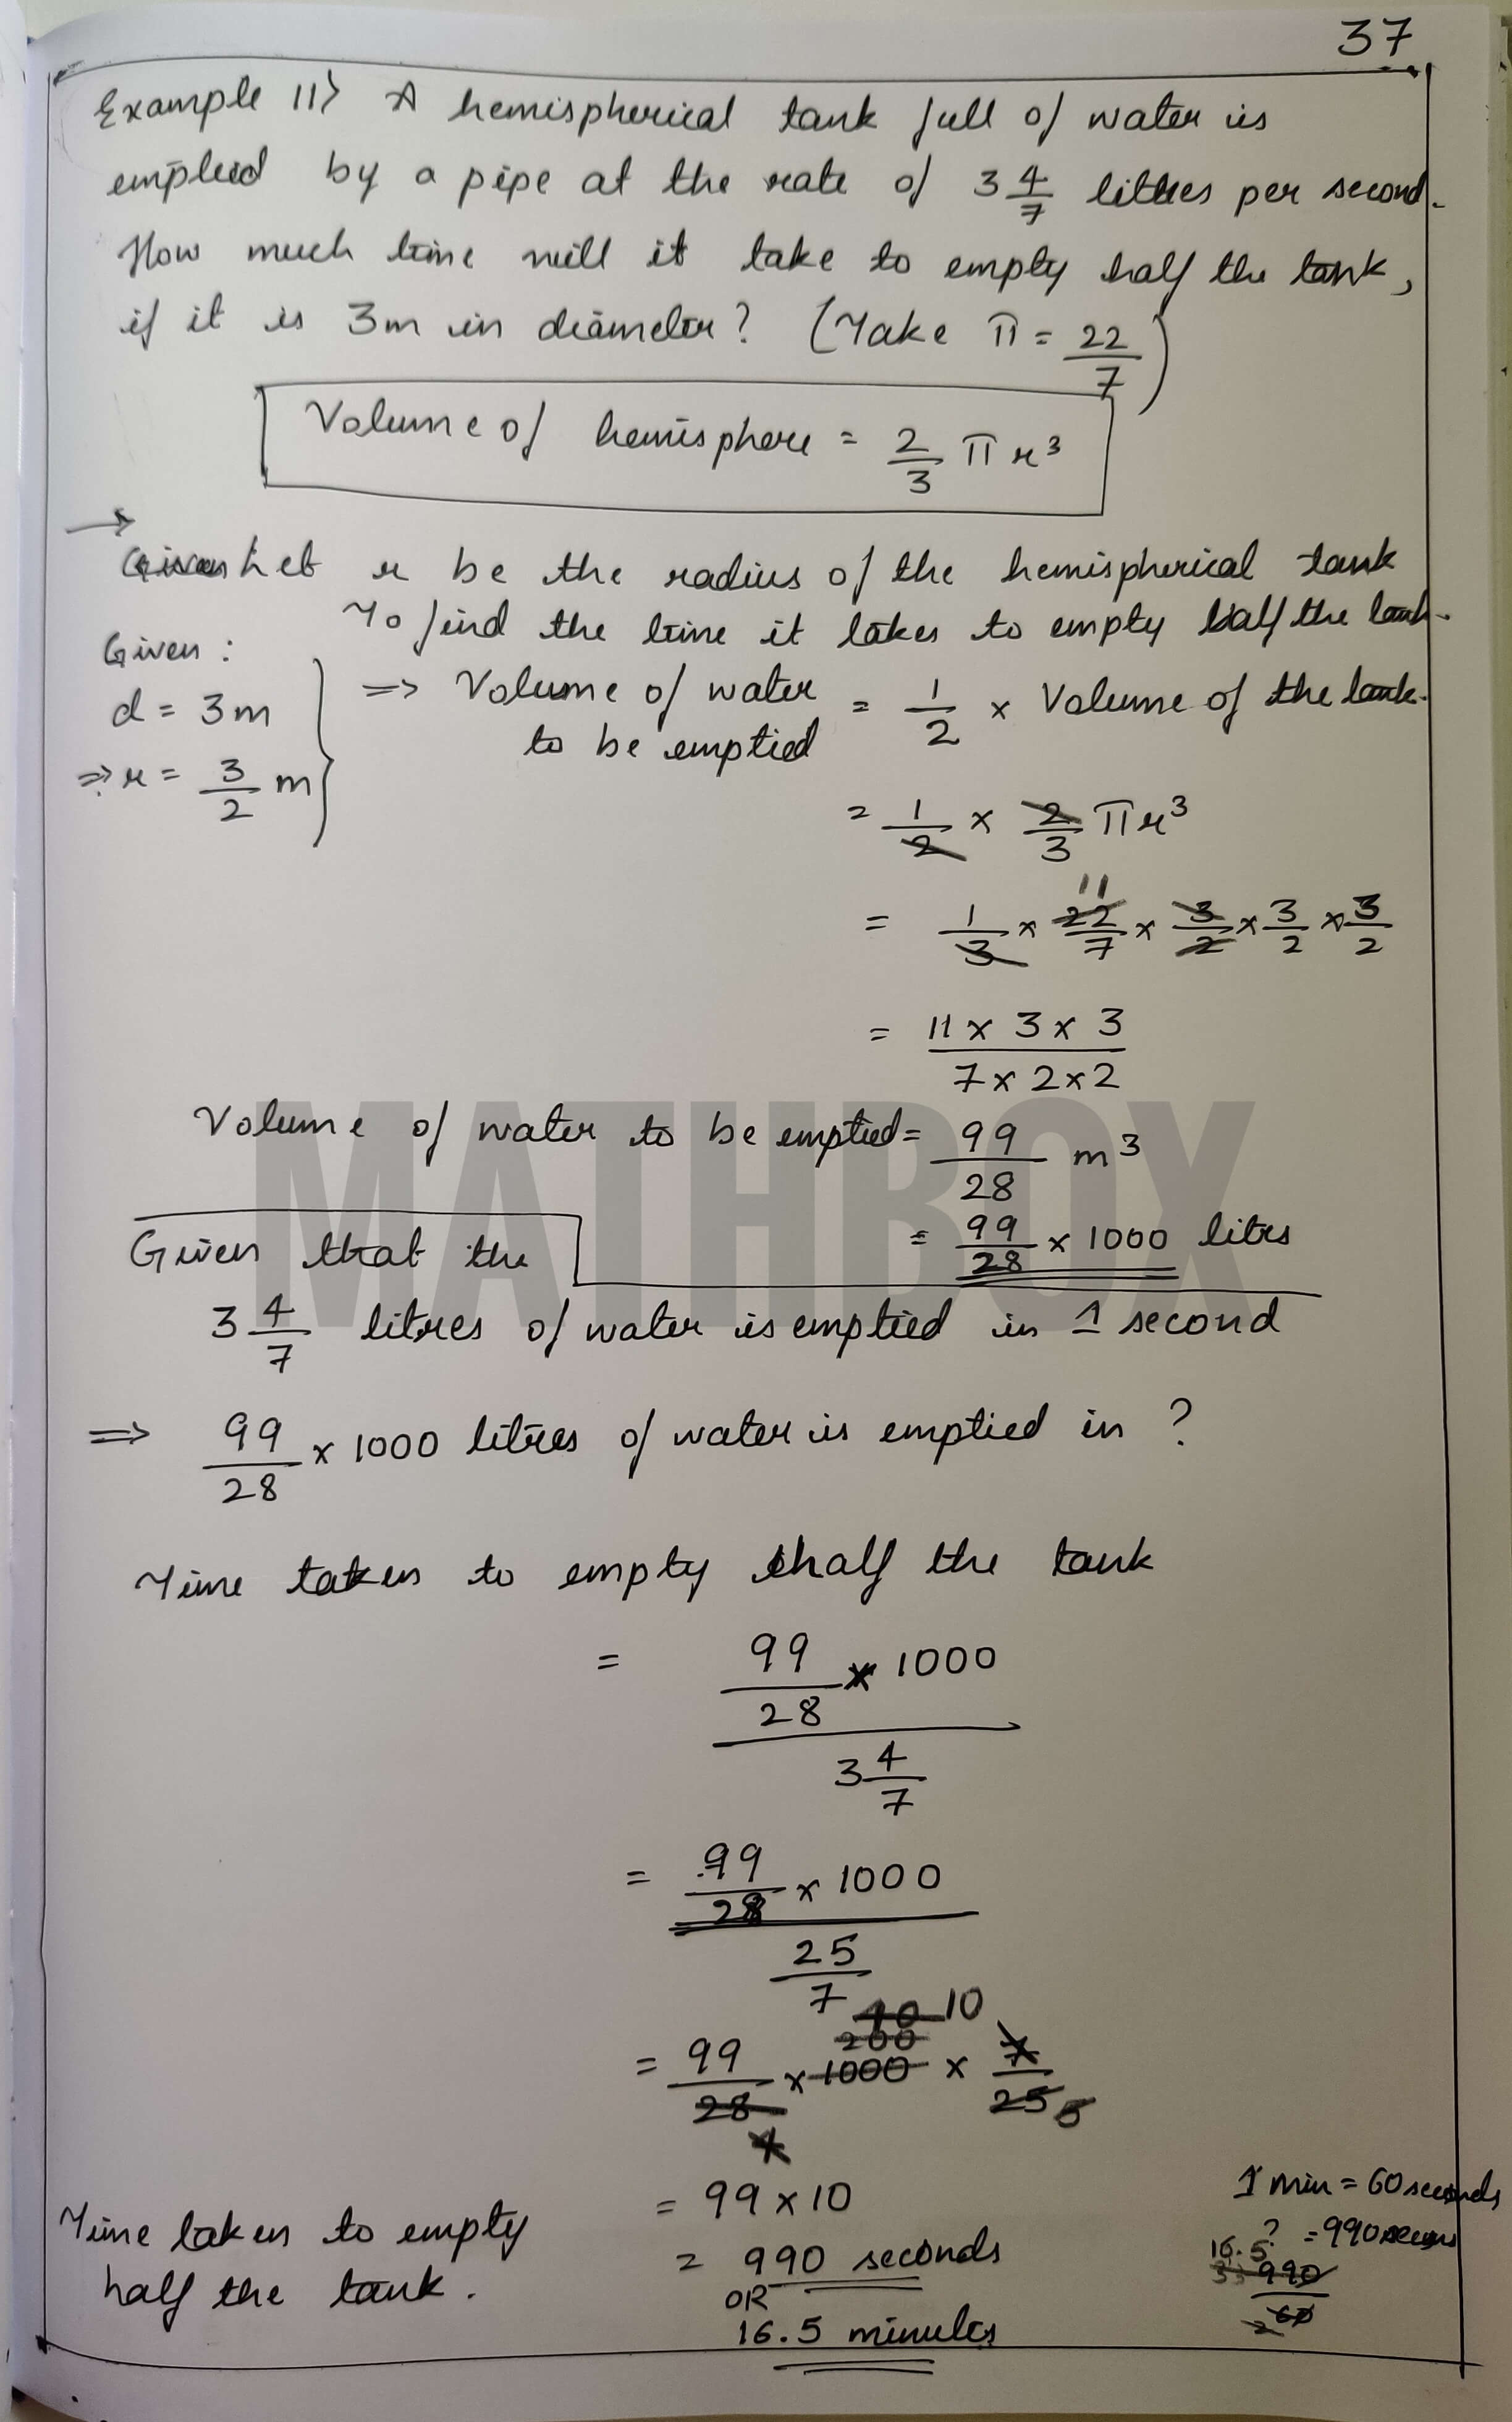 37
Example 11> A hemispherical tank full of water is
emptied by a pipe at the rate of 3 4/7 litres per second.
How much time will it take to empty half the tank,
if it is 3m in diameter? (Take π = 22/7)
Volume of hemisphere = 2/3 π r³
→
Let r be the radius of the hemispherical tank
To find the time it takes to empty half the tank.
Given :
d = 3m
⇒ r = 3/2 m
⇒ Volume of water to be emptied = 1/2 × Volume of the tank.
= 1/2 × 2/3 πr³
= 1/3 × 22/7 × 3/2 × 3/2 × 3/2
11
= 11 × 3 × 3 / 7 × 2 × 2
Volume of water to be emptied = 99/28 m³
= 99/28 × 1000 litrs
MATHBOX
Given that the
3 4/7 litres of water is emptied in 1 second
⇒ 99/28 × 1000 litres of water is emptied in ?
Time taken to empty half the tank
= 99/28 × 1000 / 3 4/7
= 99/28 × 1000 / 25/7
10 10
200
= 99/28 × 1000 × 7/25 5
4
= 99 × 10
Time taken to empty
half the tank.
= 990 seconds
OR
16.5 minutes
1 min = 60 seconds
? = 990
16.5
33 990/60
2